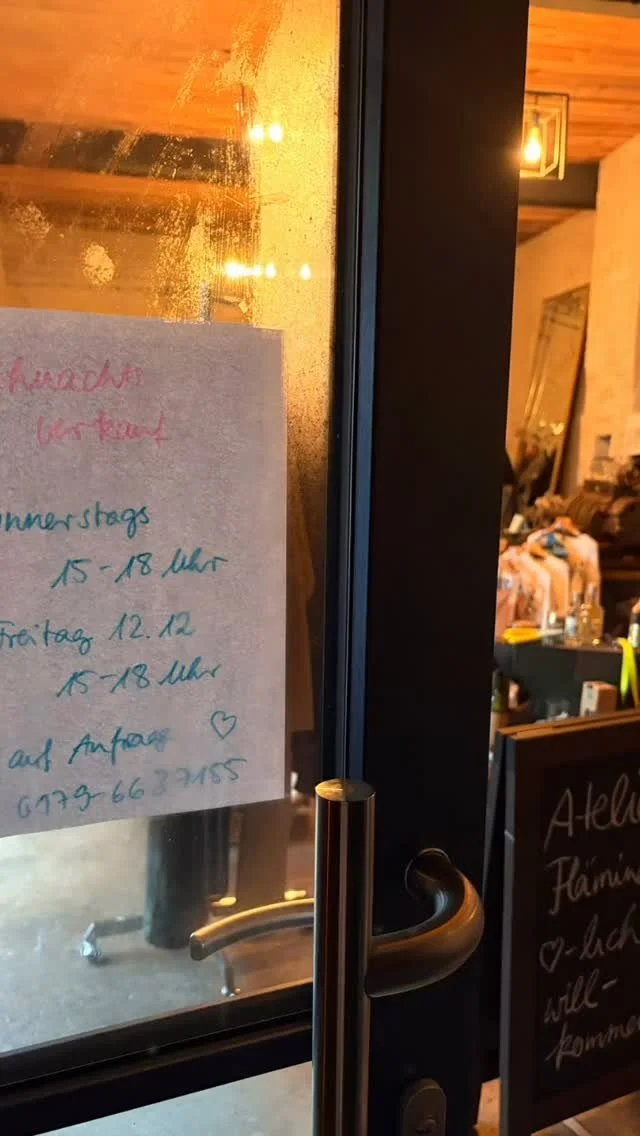 ihnachts
verkauf
nnerstags
15-18 Uhr
Freitag 12.12
15-18 Uhr
auf Anfrage ♡
0179-6637185
Ateli
Flämin
♡-lich
will-
kommen